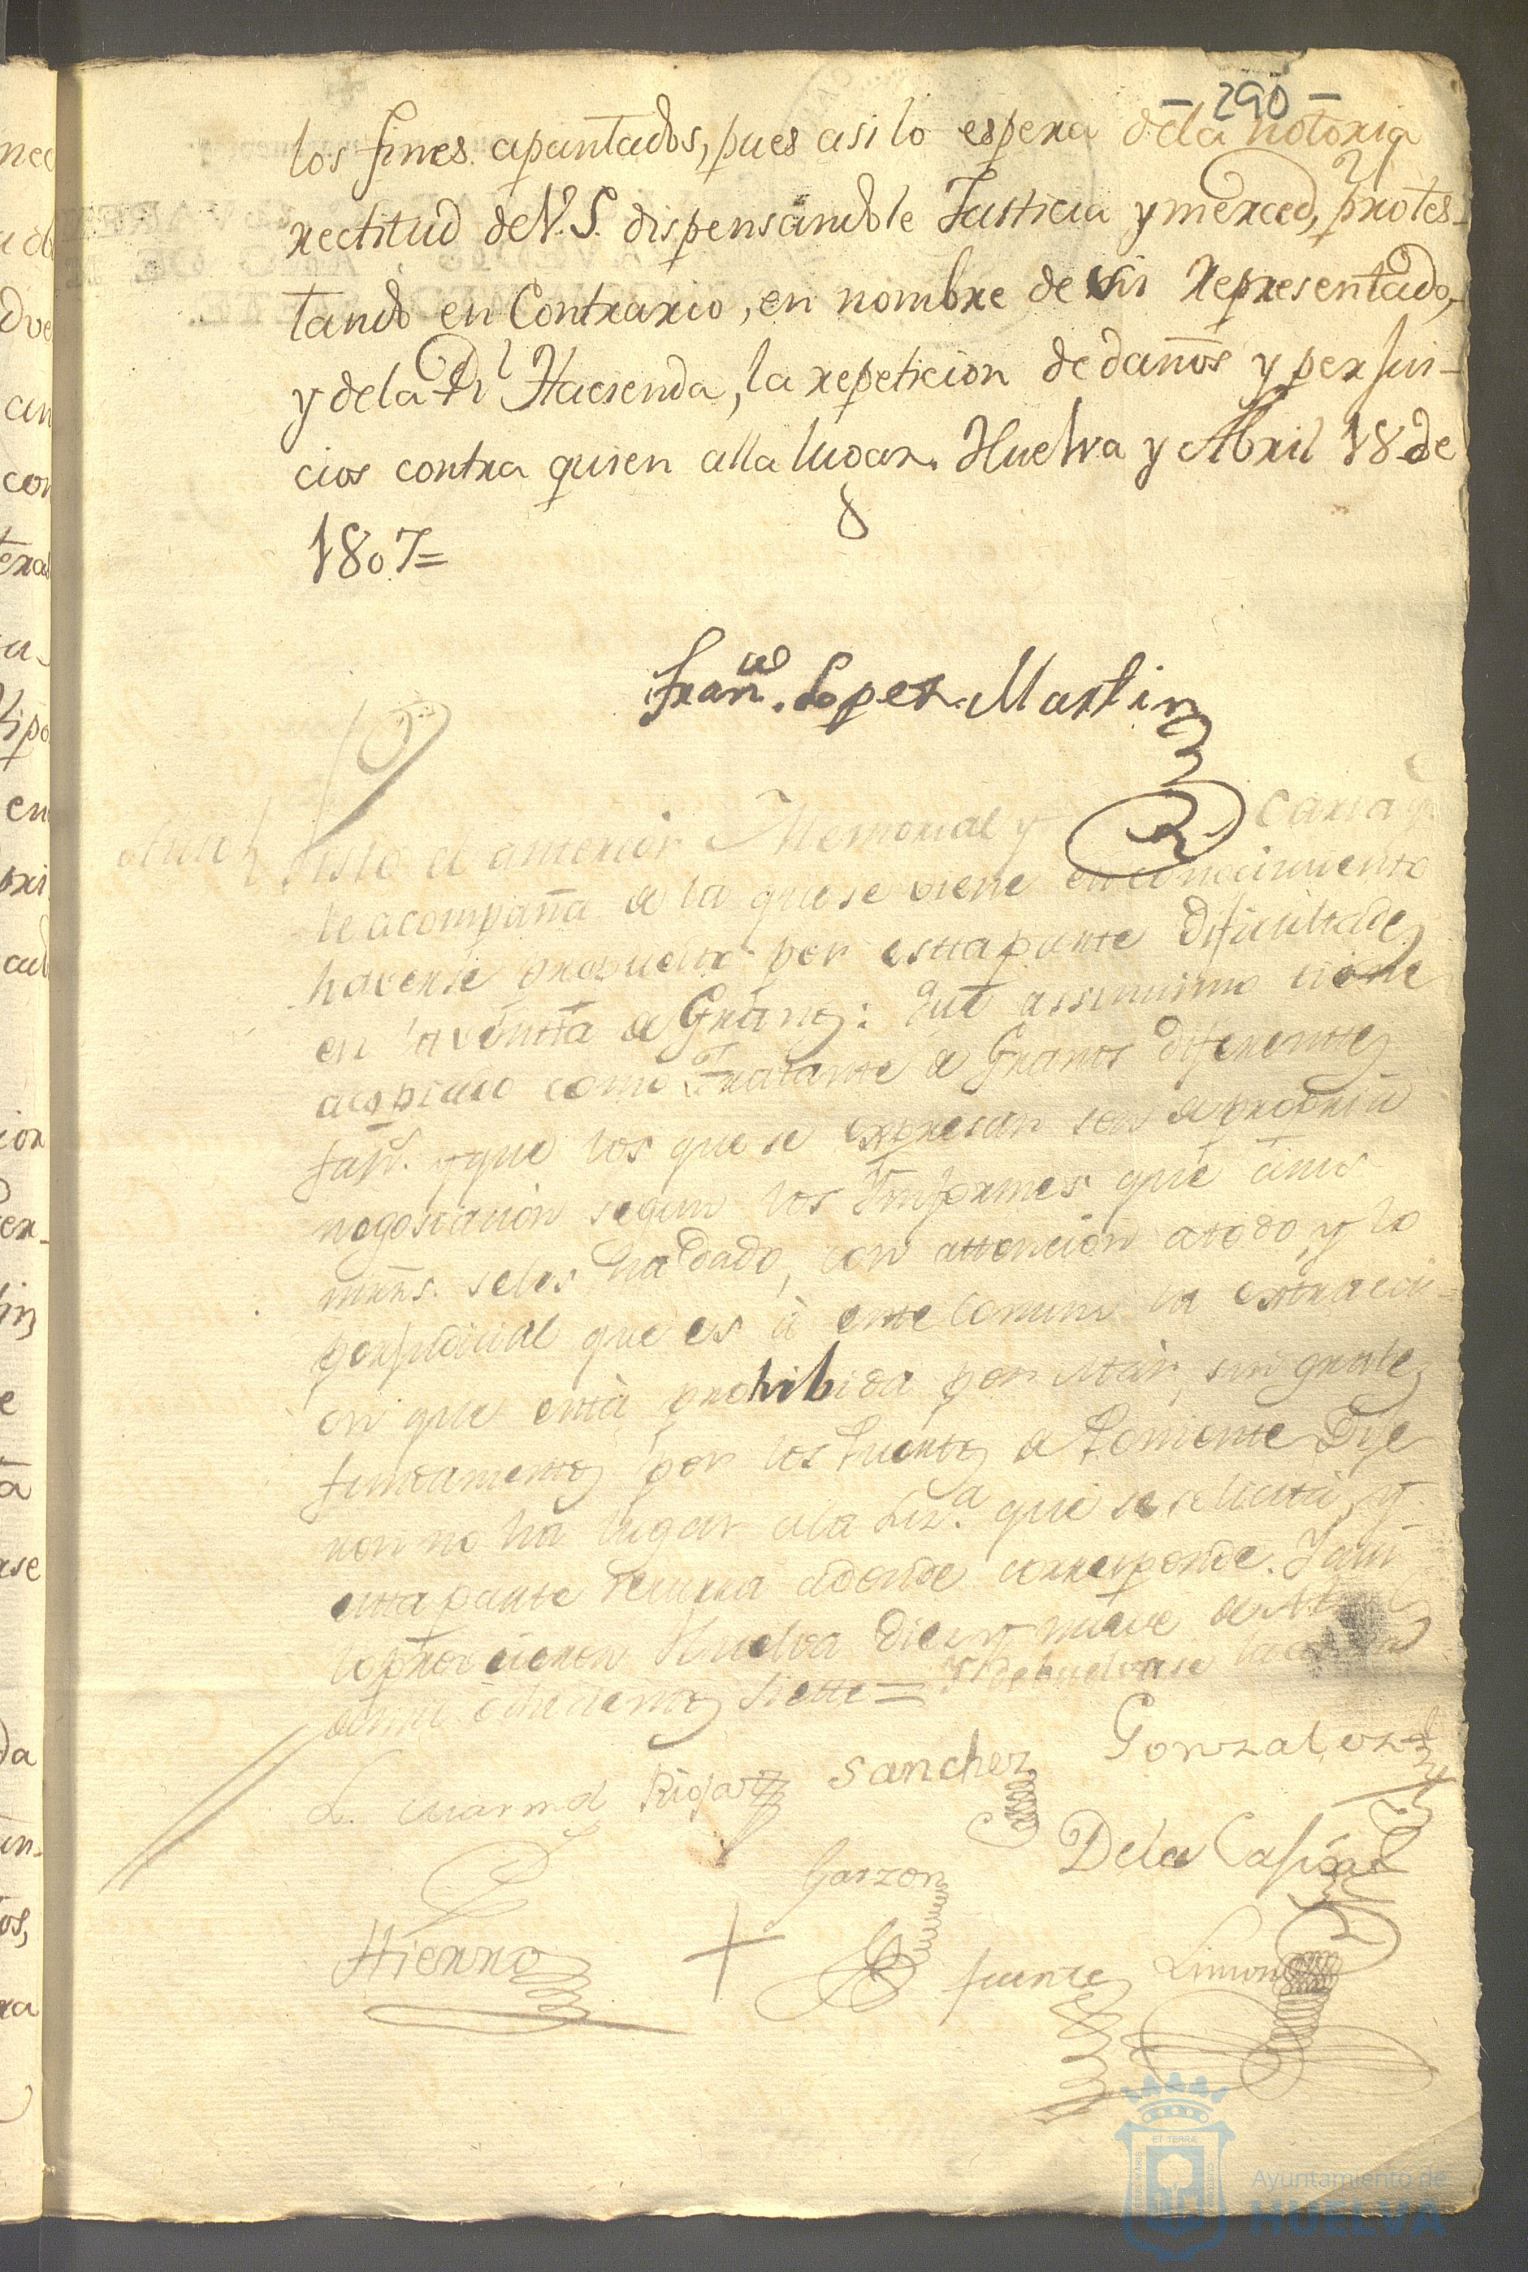 - 290 -
los fines apuntados, pues asi lo espera dela notoria
rectitud de V.S. dispensandole Justicia y merced, protes-
tando en Contrario, en nombre de su Representado,
y dela Rl Hacienda, la repeticion de daños y perjui-
cios contra quien alla lugar. Huelva y Abril 18 de
1807=
Franco. Lopez Martin
Auto Visto el anterior Memorial y Carta q
le acompaña de la que se viene en conocimiento
haverse propuesto por esta parte dificultades
en la venta de Granos: Que assimismo tiene
acopiado como Tratante de Granos diferentes
fans. y que los que se expresan son de propria
negociacion segun los Informes que
se les ha dado, con attencion a todo y lo
perjudicial que es à este Comun la extracci-
on que està prohibida por Mar, sin graves
fundamentos por los Puertos de Poniente Dije
ron no ha lugar ala Liza. que se solicita, y
esta parte recurra adonde corresponde. Y asi
lo proveieron Huelva Diez y nueve de Abril
de mil ochocientos Siette = Y debuelvase la carta
L. Marmol Rioja Sanchez Gonzalez
Garzon De la Casa
Hierro + fuente Limon
ET TERRÆ
Ayuntamiento de
HUELVA